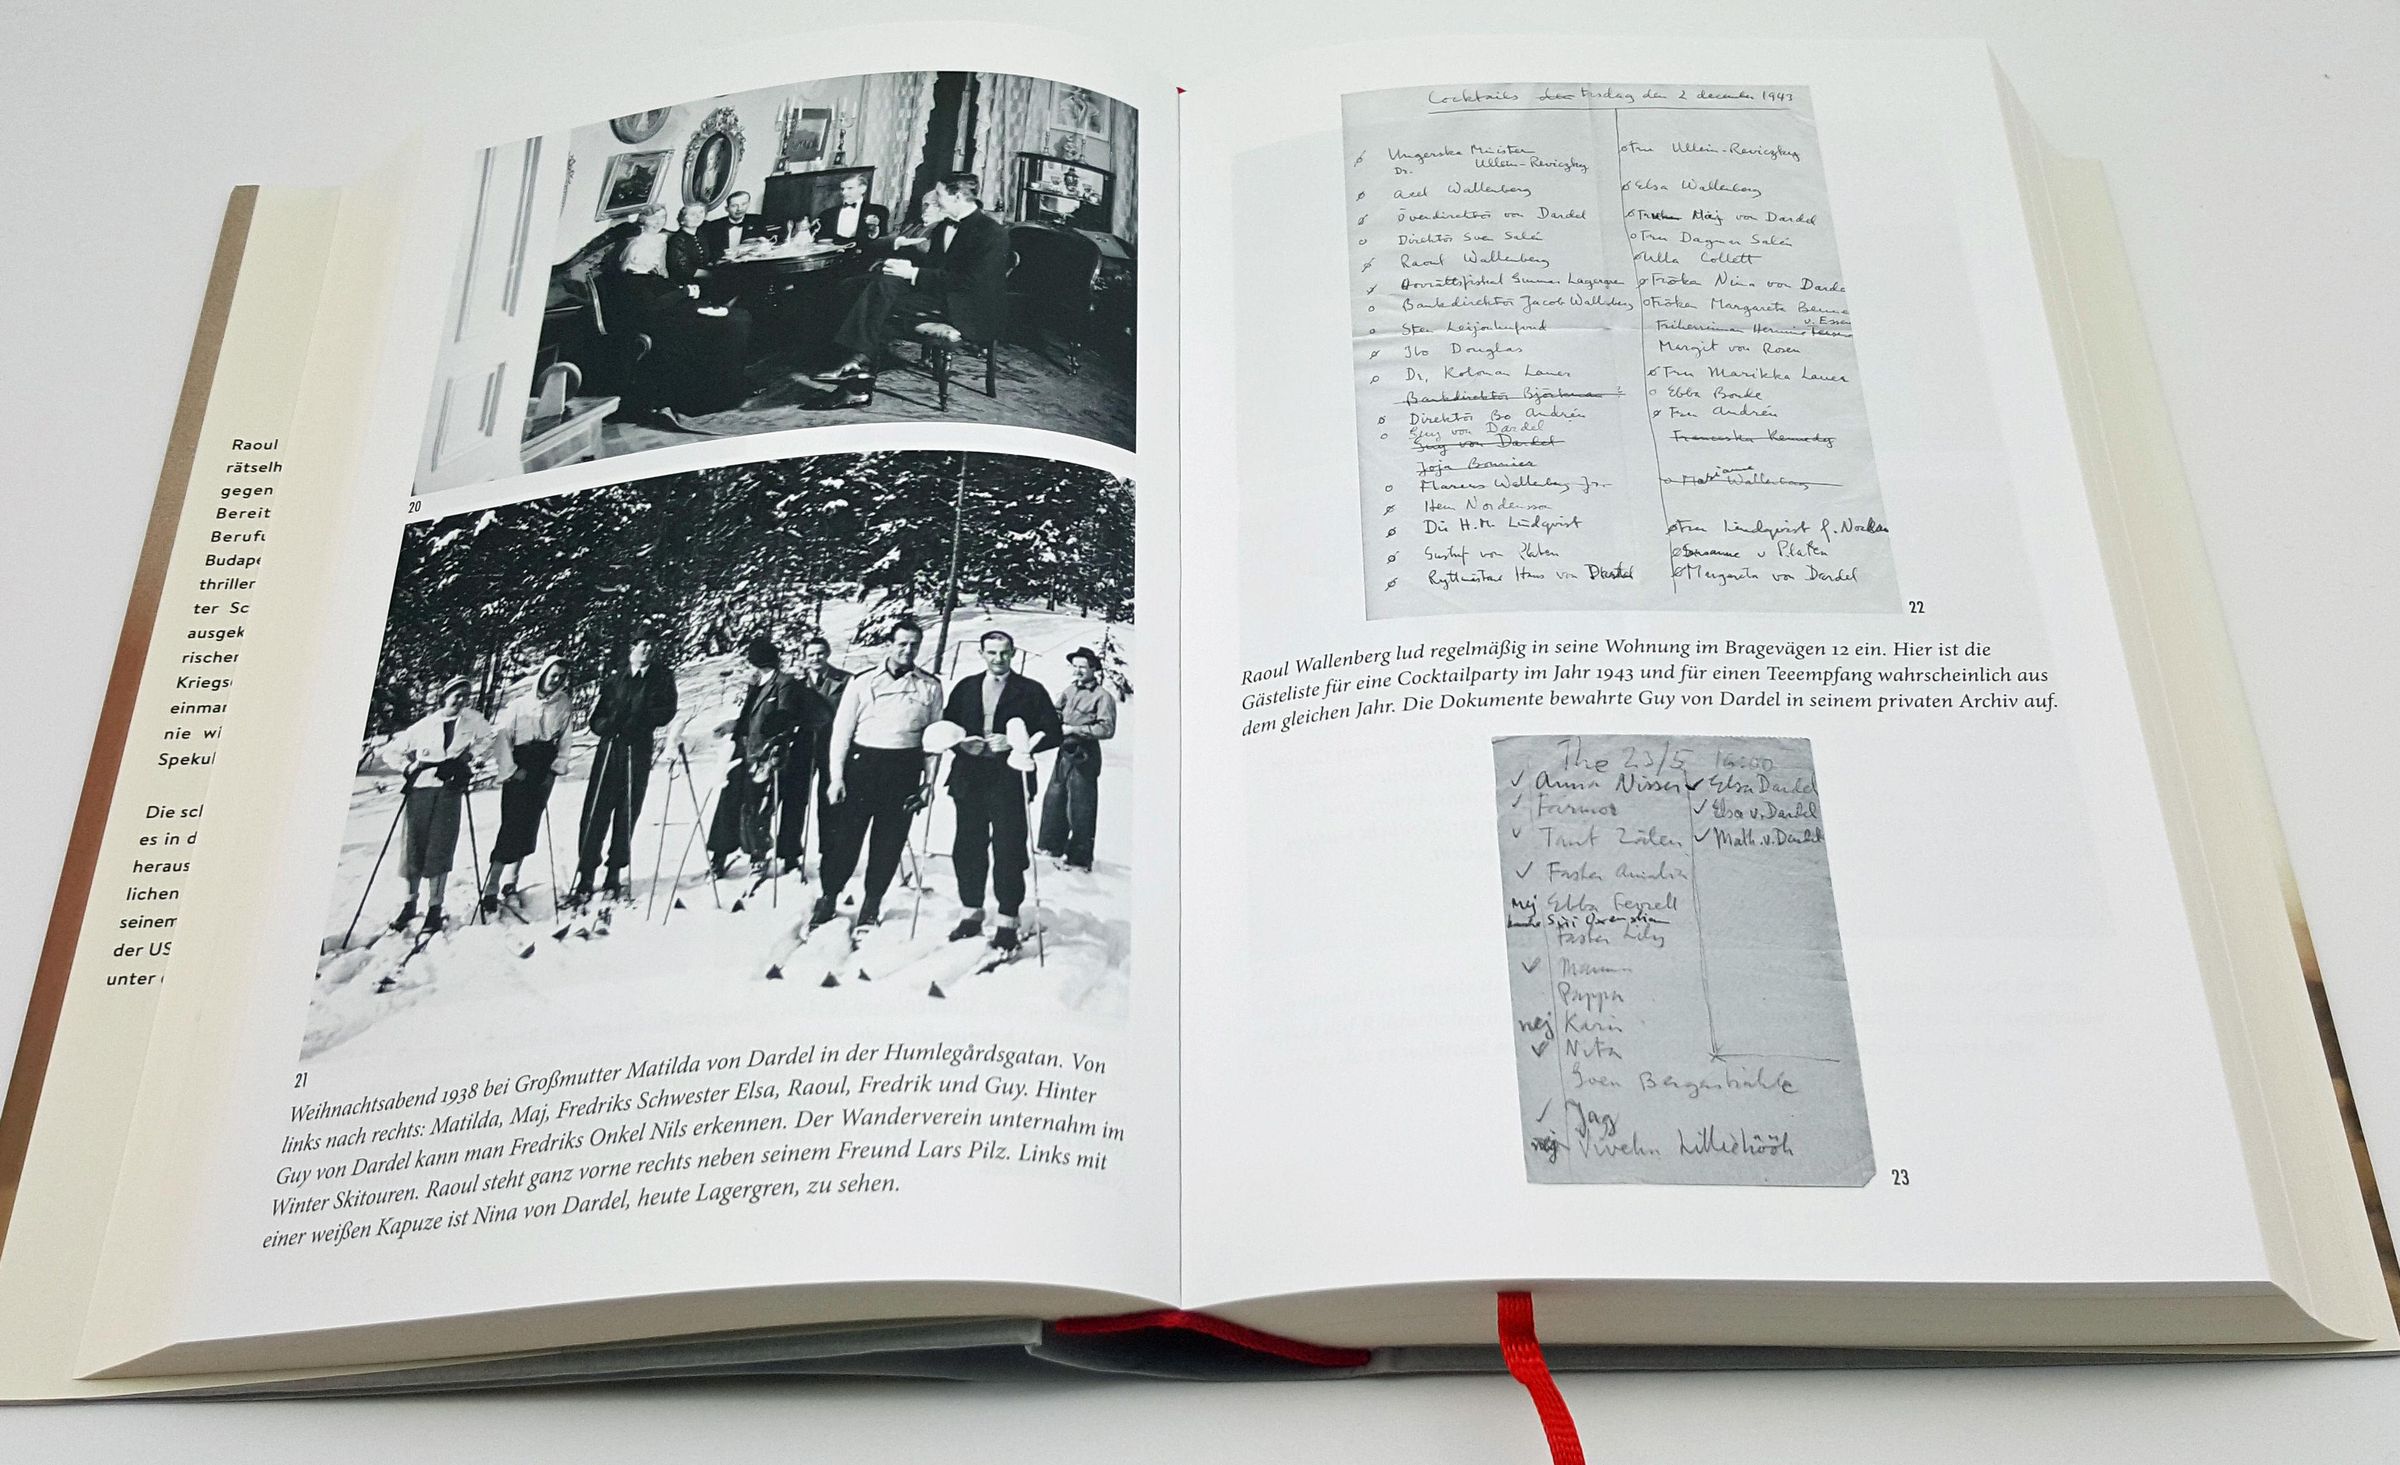 Raoul
rätselh
gegen
Bereit
Berufu
Budape
thriller
ter Sc
ausgek
rischer
Kriegs
einmar
nie wi
Spekul
Die scl
es in d
heraus
lichen
seinem
der US
unter
20
21
Weihnachtsabend 1938 bei Großmutter Matilda von Dardel in der Humlegårdsgatan. Von
links nach rechts: Matilda, Maj, Fredriks Schwester Elsa, Raoul, Fredrik und Guy. Hinter
Guy von Dardel kann man Fredriks Onkel Nils erkennen. Der Wanderverein unternahm im
Winter Skitouren. Raoul steht ganz vorne rechts neben seinem Freund Lars Pilz. Links mit
einer weißen Kapuze ist Nina von Dardel, heute Lagergren, zu sehen.
Cocktails den Torsdag den 2 december 1943
Ungerska Ministern
Dr. Ullein-Reviczky
Fru Ullein-Reviczky
Axel Wallenberg
Elsa Wallenberg
Överdirektör von Dardel
Maj von Dardel
Direktör Sven Salén
Fru Dagmar Salén
Raoul Wallenberg
Ulla Collett
Hovrättsfiskal Gunnar Lagergren
Fröken Nina von Darde
Bankdirektör Jacob Wallenberg
Fröken Margareta
v. Essen
Sten Leijonhufvud
Friherrinnan
Ibo Douglas
Margit von Rosen
Dr. Koloman Lauer
Fru Marikka Lauer
Bankdirektör Björkman ?
Ebba Bonde
Direktör Bo Andrén
Fru Andrén
Guy von Dardel
Guy von Dardel
Franceska Kennedy
Joja Bonnier
Marcus Wallenberg Jr.
Marianne Wallenberg
Herr Nordenson
Dir H.M. Lindqvist
Fru Lindqvist f.
Gustaf von Platen
v Platen
Ryttmästare Hans von Dardel
Margareta von Dardel
22
Raoul Wallenberg lud regelmäßig in seine Wohnung im Bragevägen 12 ein. Hier ist die
Gästeliste für eine Cocktailparty im Jahr 1943 und für einen Teeempfang wahrscheinlich aus
dem gleichen Jahr. Die Dokumente bewahrte Guy von Dardel in seinem privaten Archiv auf.
The 23/5 16:00
Anna Nisser
Elsa Dardel
Farmor
Elsa v. Dardel
Tant
Math. v. Dardel
Faster Amalia
nej Ebba
Siri Oxenstiern
Faster Lily
Mamma
Pappa
nej Karin
Nita
Sven Bergenstråhle
Jag
nej Viveka Lilliehöök
23